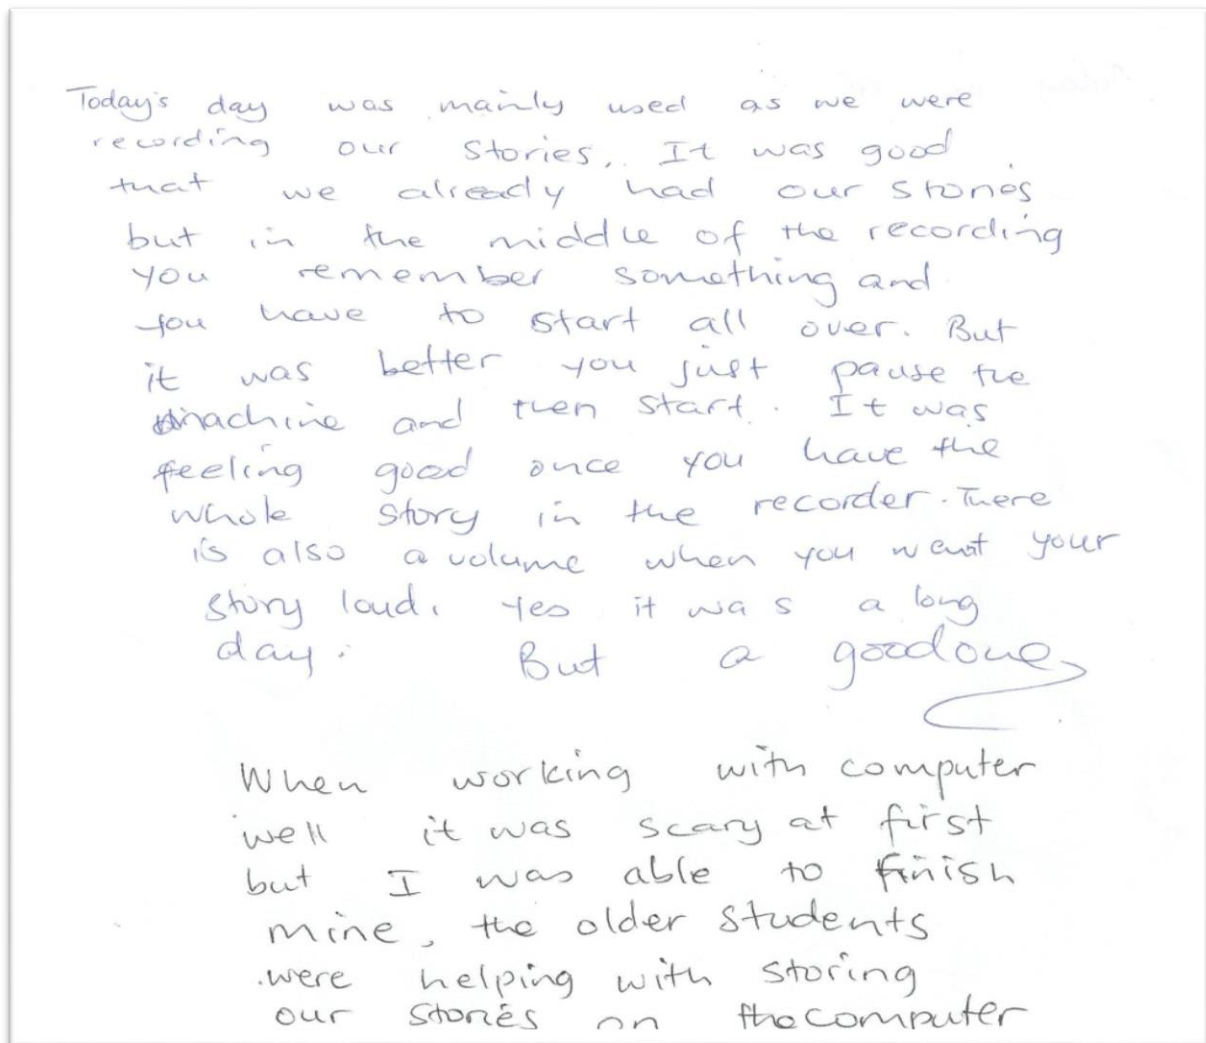 Today's day was mainly used as we were
recording our stories. It was good
that we already had our stories
but in the middle of the recording
you remember something and
you have to start all over. But
it was better you just pause the
machine and then start. It was
feeling good once you have the
whole story in the recorder. There
is also a volume when you want your
story loud. Yes it was a long
day. But a good one
When working with computer
well it was scary at first
but I was able to finish
mine, the older students
were helping with storing
our stories on the computer